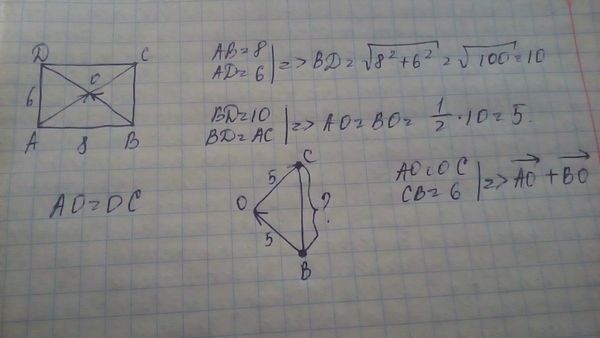 D C
O
6
A 8 B
AB=8
AD=6 | => BD=√8²+6² = √100=10
BD=10
BD=AC | => AO=BO= 1/2 · 10=5.
AO=OC
C
5
O ?
5
B
AO=OC
CB=6 | => AO→ + BO→